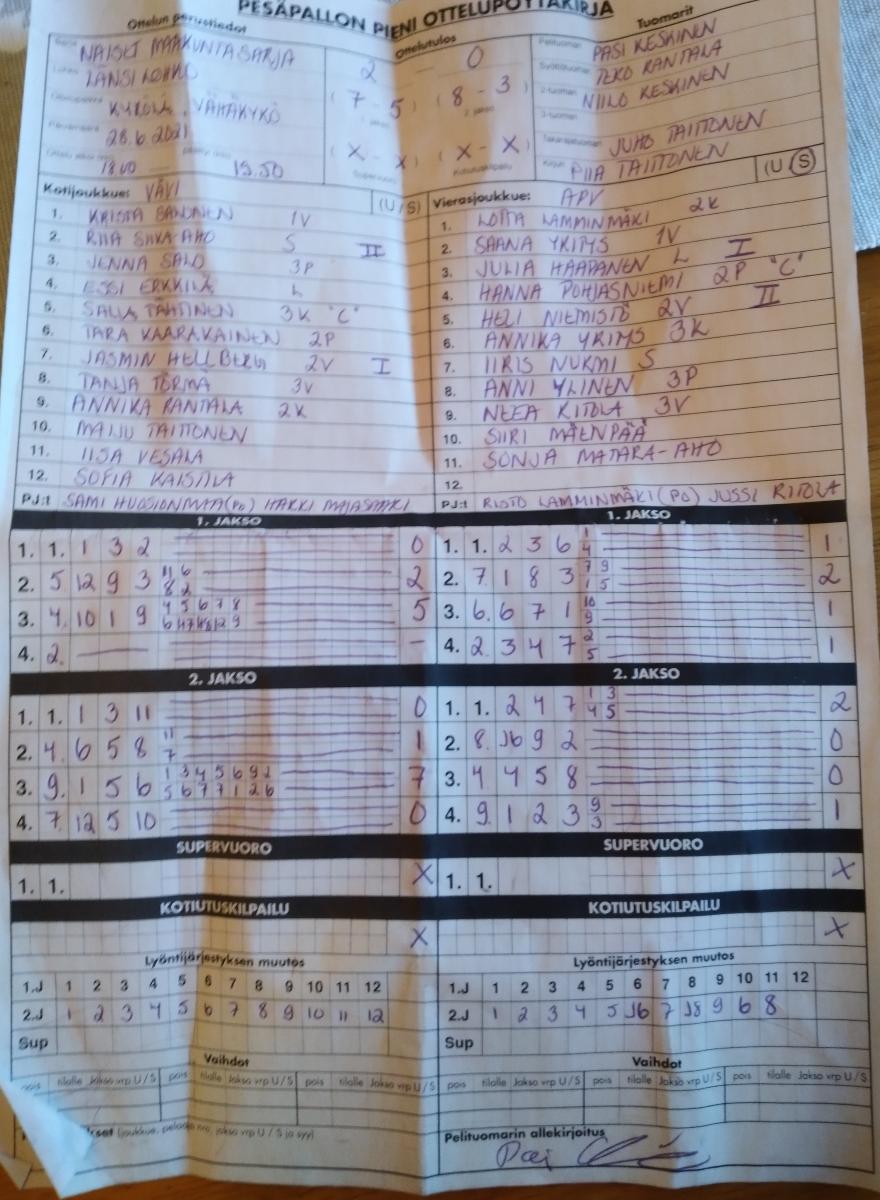 PESÄPALLON PIENI OTTELUPÖYTÄKIRJA
Ottelun perustiedot
Ottelutulos
Tuomarit
NAISET MAAKUNTASARJA
LÄNSI LOHKO
KYRÖLÄ, VÄHÄKYRÖ
28.6.2021
18.00 19.50
2 - 0
(7 - 5) (8 - 3)
(X - X) (X - X)
Supervuoro Kotiutuskilpailu
PASI KESKINEN
TERO RANTALA
NIILO KESKINEN
JUHO TAITTONEN
PIIA TAITTONEN
Kotijoukkue: VÄVI (U/S)
1. KRISTA SANONEN 1V
2. RIIA SIIKA-AHO S II
3. JENNA SALO 3P
4. ESSI ERKKILÄ L
5. SALLA TÄHTINEN 3K "C"
6. TARA KAARAKAINEN 2P
7. JASMIN HELLBERG 2V I
8. TANJA TÖRMÄ 3V
9. ANNIKA RANTALA 2K
10. MAIJU TAITTONEN
11. IISA VESALA
12. SOFIA KAISTILA
PJ:t SAMI HUOSIONMAA (PO) HARRI MAJASAARI
Vierasjoukkue: APV (U/S)
1. LOTTA LAMMINMÄKI 2K
2. SAANA YRITYS 1V
3. JULIA HAAPANEN L I
4. HANNA POHJASNIEMI 2P "C"
5. HELI NIEMISTÖ 2V II
6. ANNIKA YRITYS 3K
7. IIRIS NURMI S
8. ANNI YLINEN 3P
9. NEEA RITOLA 3V
10. SIIRI MÄENPÄÄ
11. SONJA MATARA-AHO
12.
PJ:t RISTO LAMMINMÄKI (PO) JUSSI RIITOLA
1. JAKSO
1. 1. 1 3 2 0
2. 5 12 9 3 11 6 2
8 2
3. 4. 10 1 9 4 5 6 7 8 5
4. 2. -
1. JAKSO
1. 1. 2 3 6 1 1
4
2. 7. 1 8 3 7 9 2
1 5
3. 6. 6 7 1 10 1
9
4. 2. 3 4 7 2 1
5
2. JAKSO
1. 1. 1 3 11 0
2. 4. 6 5 8 11 1
7
3. 9. 1 5 6 1 3 4 5 6 9 2 7
5 6 7 7 1 2 6
4. 7. 12 5 10 0
2. JAKSO
1. 1. 2 4 7 1 3 2
4 5
2. 8. J6 9 2 0
3. 4 4 5 8 0
4. 9. 1 2 3 9 1
3
SUPERVUORO
1. 1. X
SUPERVUORO
1. 1. X
KOTIUTUSKILPAILU
X
KOTIUTUSKILPAILU
X
Lyöntijärjestyksen muutos
1.J 1 2 3 4 5 6 7 8 9 10 11 12
2.J 1 2 3 4 5 6 7 8 9 10 11 12
Sup
Lyöntijärjestyksen muutos
1.J 1 2 3 4 5 6 7 8 9 10 11 12
2.J 1 2 3 4 5 J6 7 J8 9 6 8
Sup
Vaihdot
pois tilalle Jakso vrp U/S pois tilalle Jakso vrp U/S pois tilalle Jakso vrp U/S
Vaihdot
pois tilalle Jakso vrp U/S pois tilalle Jakso vrp U/S pois tilalle Jakso vrp U/S
(joukkue, pelaaja nro, jakso vrp U / S ja syy)
Pelituomarin allekirjoitus